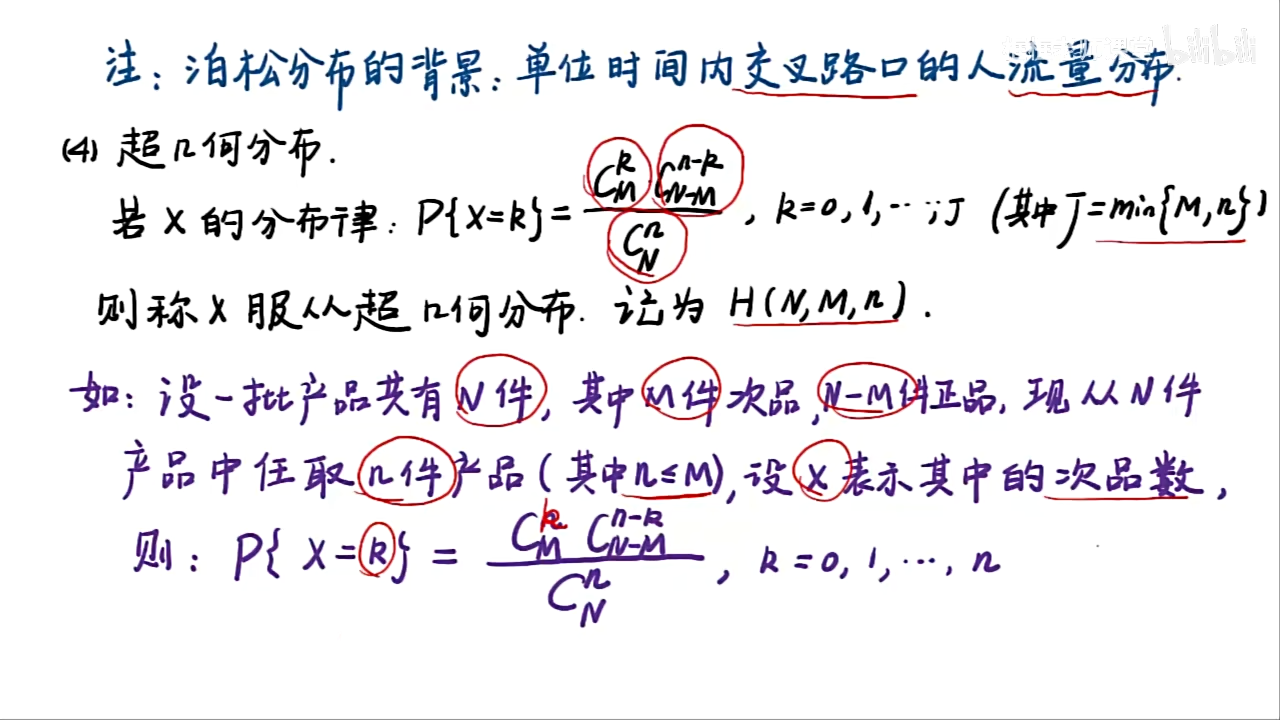 注：泊松分布的背景：单位时间内交叉路口的人流量分布.
(4) 超几何分布.
若 X 的分布律：P{X=k} = \frac{C_M^k C_{N-M}^{n-k}}{C_N^n}, k=0,1,…,J (其中J=min{M,n})
则称 X 服从超几何分布. 记为 H(N,M,n).
如：设一批产品共有 N件, 其中 M件 次品, N-M件正品, 现从N件
产品中任取 n件产品 (其中n≤M), 设 X 表示其中的次品数,
则：P{X=k} = \frac{C_M^k C_{N-M}^{n-k}}{C_N^n}, k=0,1,…,n
bilibili